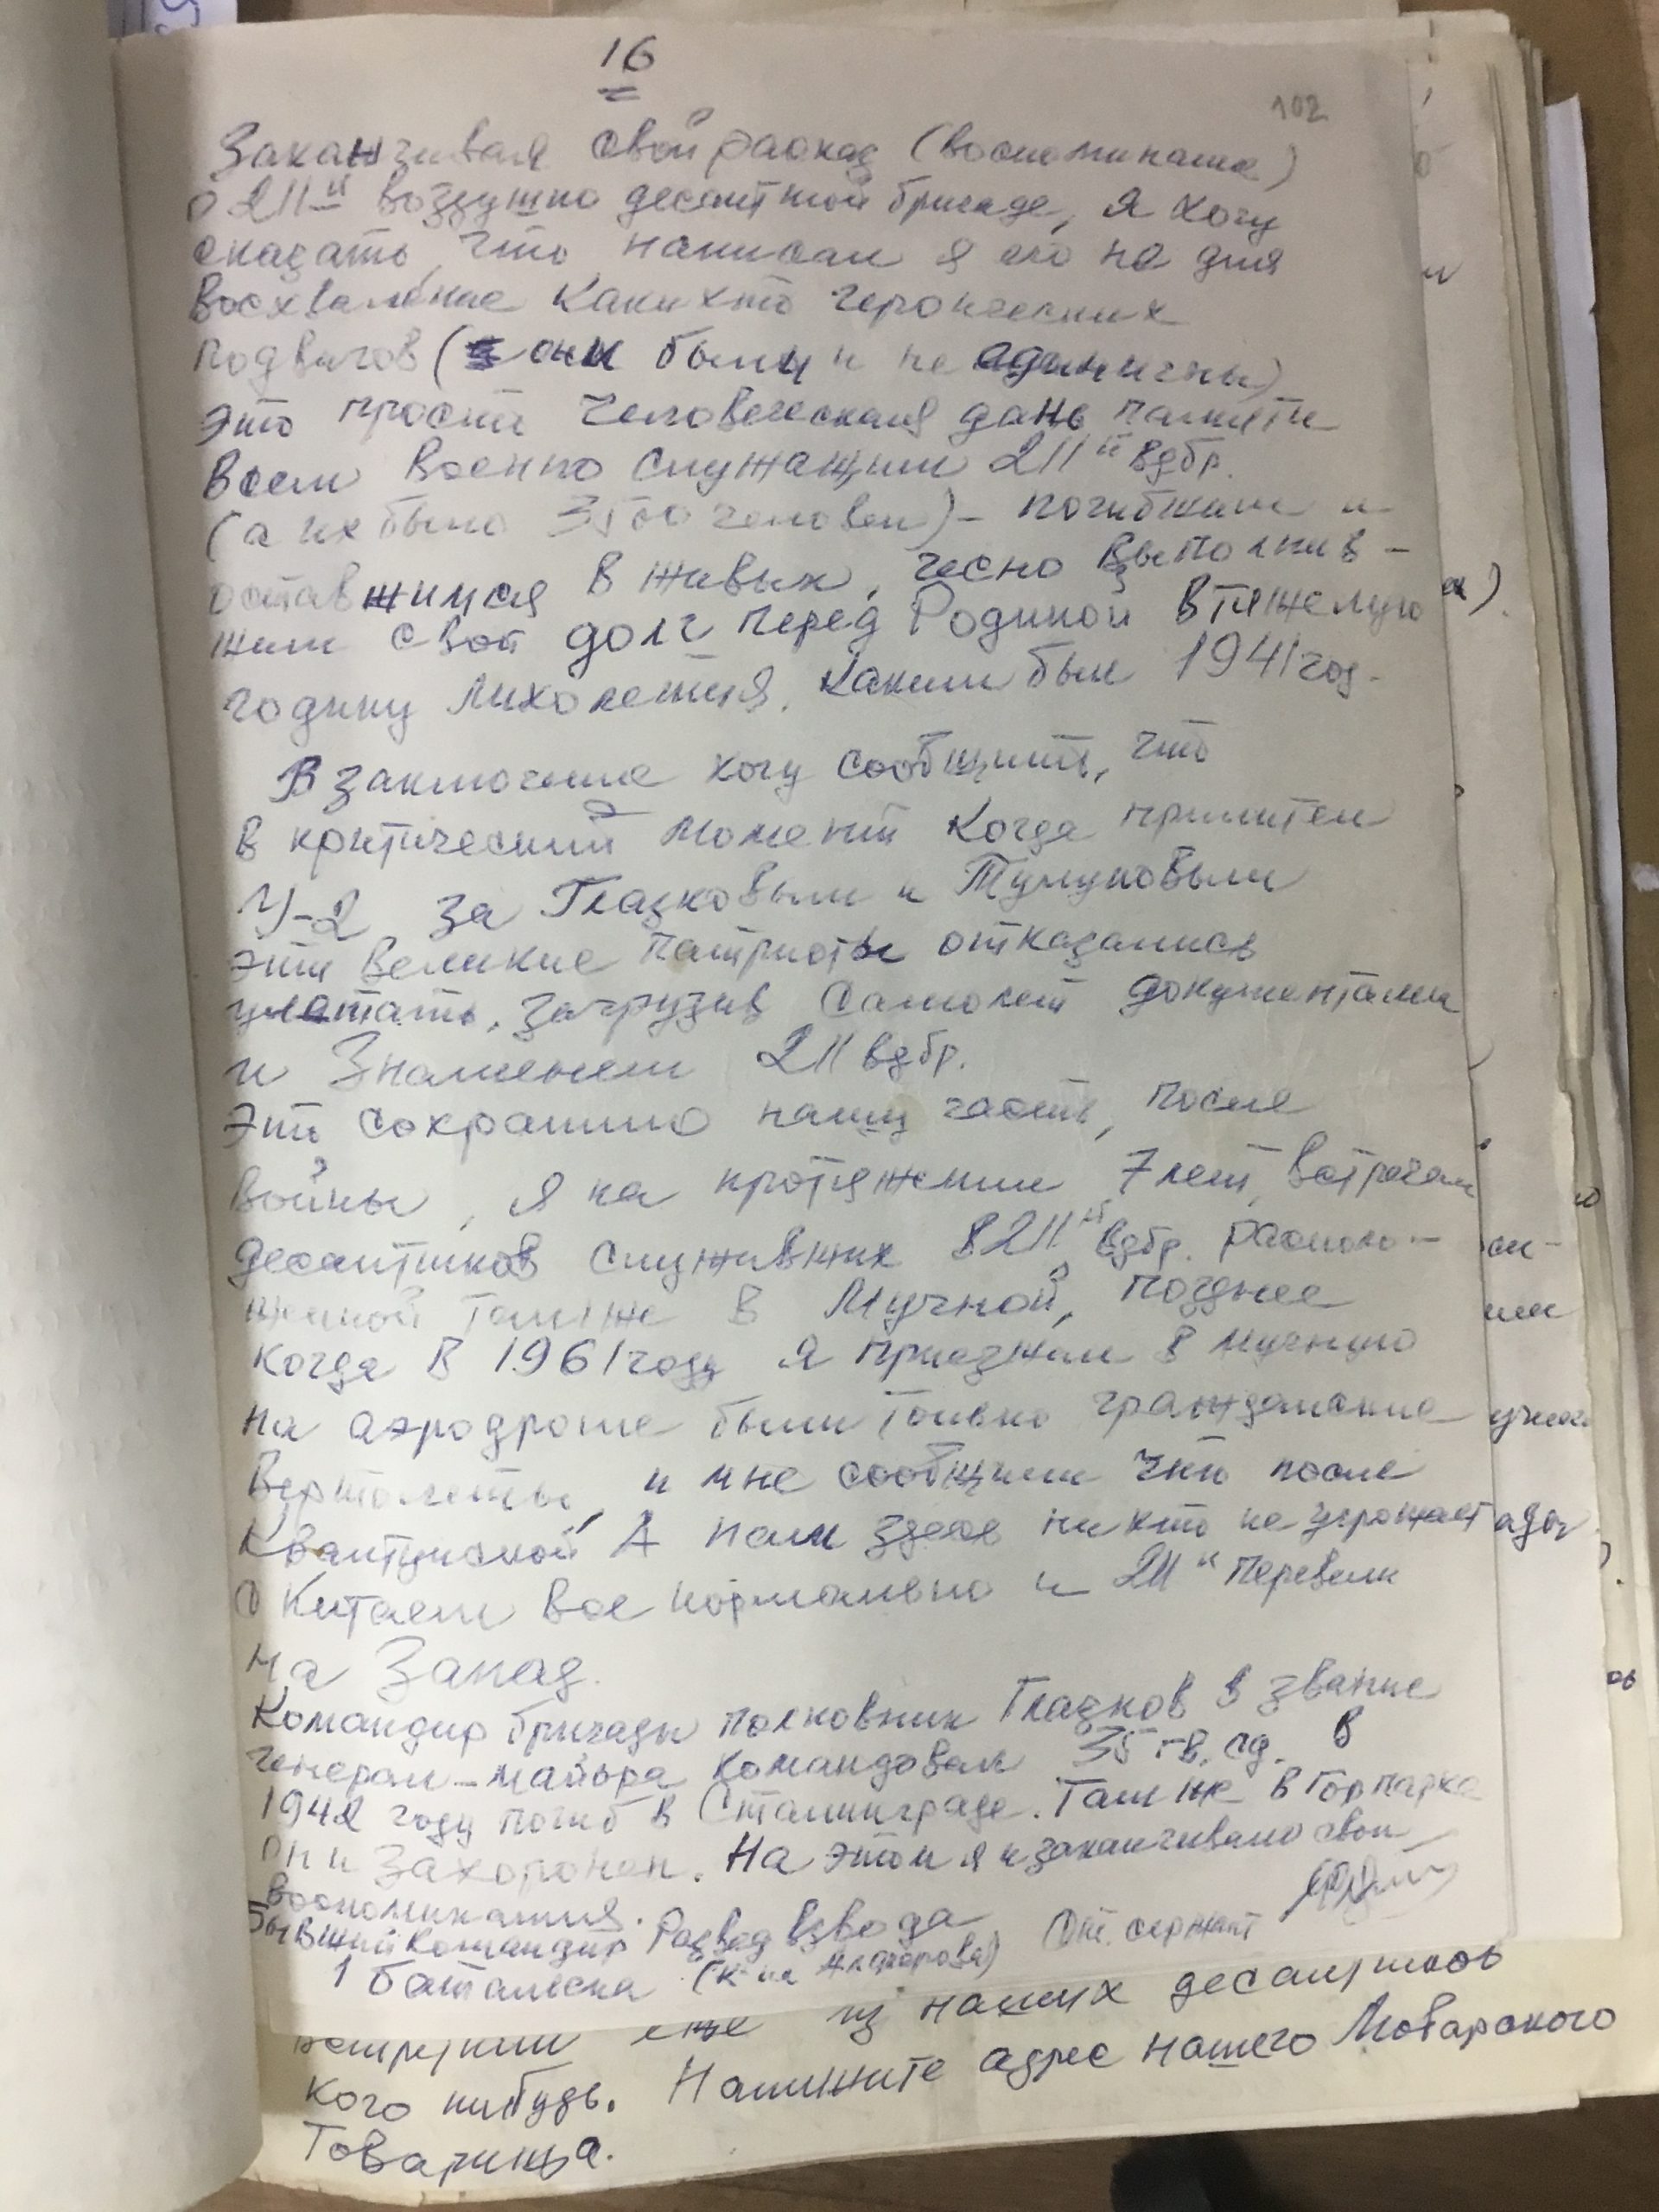 16
102
Заканчивая свой расказ (воспоминание)
о 211й воздушно десантной бригаде, я хочу
сказать, что написал я его не для
восхваление каких то героических
подвигов (они были и не единичны)
это проста человеческая дань памяти
всем военно служащим 211й вдбр.
(а их было 3500 человек) - погибшим и
оставшимся в живых, чесно выполнив-
шим свой долг перед Родиной в тяжелую
годину лихолетия, каким был 1941 год.
В заключение хочу сообщить, что
в критический момент когда прилител
У-2 за Глазковым и Тумуновым
эти великие патриоты отказались
улетать, загрузив самолет документами
и Знаменем 211 вдбр.
Это сохранило нашу часть, после
войны, я на протяжении 7 лет, встречал
десантников служивших в 211й вдбр. располо-
женной там же в Мучной, позднее
когда в 1961 году я приезжал в Мучную
на аэродроме были только гражданские
вертолеты, и мне сообщили что после
Квантунской А нам здесь никто не угрожает
с Китаем все нормально и 211й перевели
на Запад.
Командир бригады полковник Глазков в звание
генерал-майора командовал 35 гв. сд. в
1942 году погиб в Сталинграде. Там же в Горпарке
он и захоронен. На этом я и заканчиваю свои
воспоминания.
Бывший командир Развед взвода
1 баталиона (к-на Андр) От. сержант
еще из наших десантников
кого нибудь. Напишите адрес нашего
Товарища.